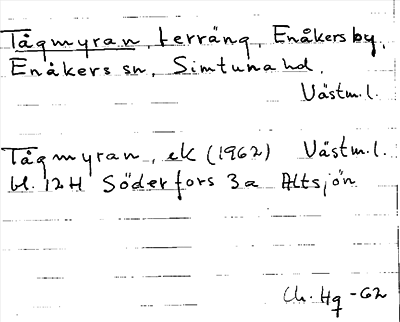 Tågmyran, terräng, Enåkers by,
Enåkers sn, Simtuna hd.
Västm. l.
Tågmyran, ek (1962) Västm. l.
bl. 12H Söderfors 3a Altsjön
Ch. Hg -62